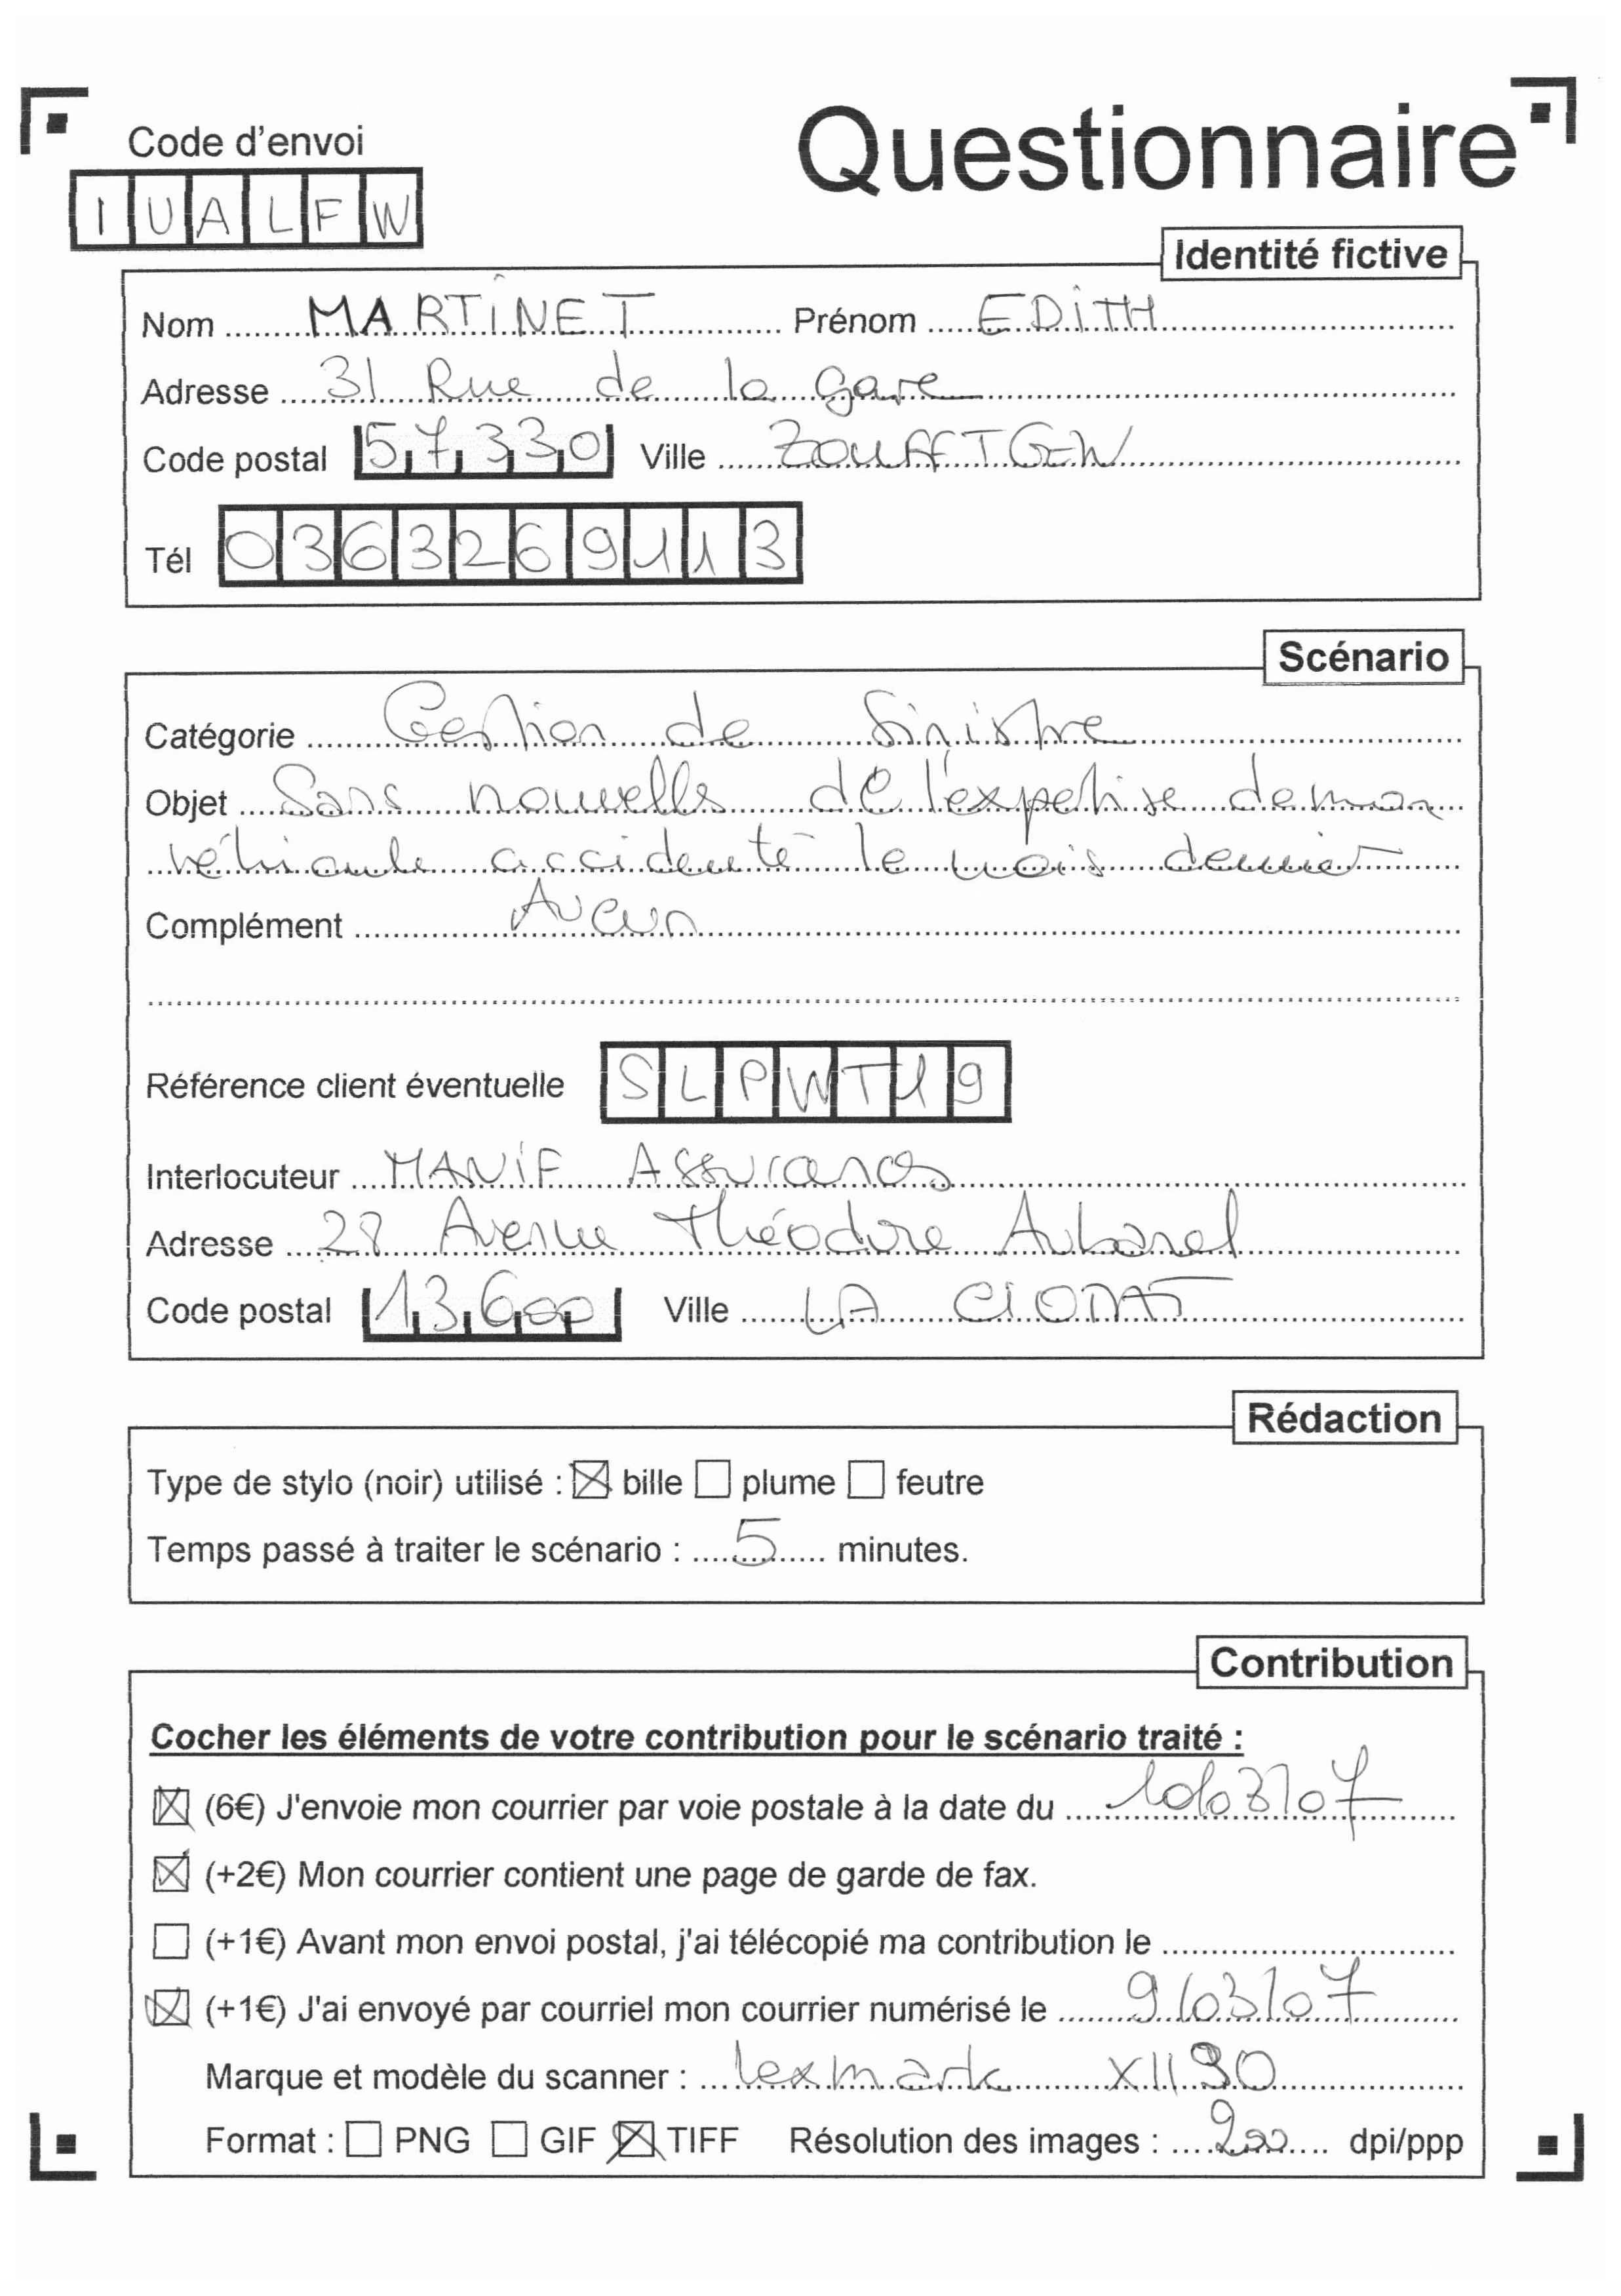 Code d'envoi
Questionnaire
IUALFW
Identité fictive
Nom MARTINET Prénom EDITH
Adresse 31 Rue de la gare
Code postal 57330 Ville ZOUFFTGEN
Tél 0363269113
Scénario
Catégorie Gestion de Sinistre
Objet Sans nouvelle de l'expertise de mon
véhicule accidenté le mois dernier
Complément Aucun
Référence client éventuelle SLPWT19
Interlocuteur MANIF Assurances
Adresse 28 Avenue Théodore Aubanel
Code postal 13600 Ville LA CIOTAT
Rédaction
Type de stylo (noir) utilisé : ☒ bille ☐ plume ☐ feutre
Temps passé à traiter le scénario : 5 minutes.
Contribution
Cocher les éléments de votre contribution pour le scénario traité :
☒ (6€) J'envoie mon courrier par voie postale à la date du 10/03/07
☒ (+2€) Mon courrier contient une page de garde de fax.
☐ (+1€) Avant mon envoi postal, j'ai télécopié ma contribution le
☒ (+1€) J'ai envoyé par courriel mon courrier numérisé le 9/03/07
Marque et modèle du scanner : lexmark X1190
Format : ☐ PNG ☐ GIF ☒ TIFF Résolution des images : 200 dpi/ppp